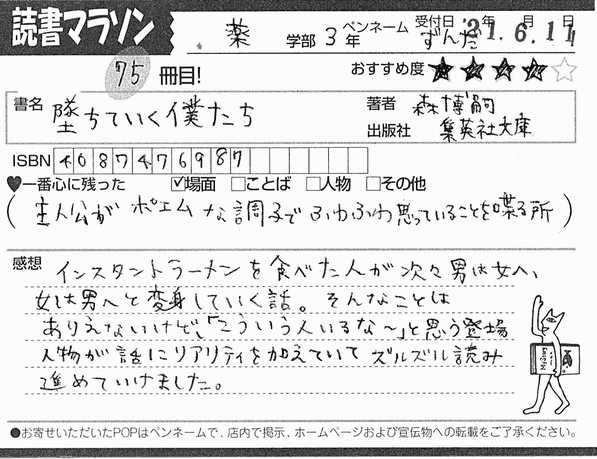 読書マラソン
薬 学部 3 年 ペンネーム ずんだ 受付日 21年6月11日
75 冊目! おすすめ度 ★★★★☆
書名 墜ちていく僕たち 著者 森博嗣
出版社 集英社文庫
ISBN 4087476987
♥一番心に残った ☑場面 □ことば □人物 □その他
(主人公が ポエムな調子で ふわふわ思っていることを喋る所)
感想 インスタントラーメンを食べた人が次々男は女へ、
女は男へと変身していく話。そんなことは
ありえないけど、「こういう人いるな〜」と思う登場
人物が話にリアリティを加えていて ズルズル読み
進めていけました。
●お寄せいただいたPOPはペンネームで、店内で掲示、ホームページおよび宣伝物への転載をご了承ください。